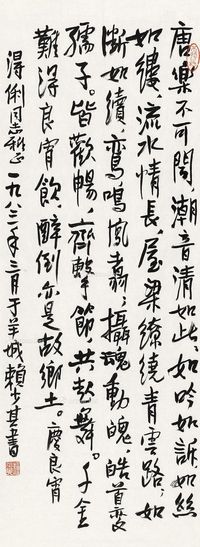 唐樂不可闻，潮音清如此，如吟如訴，如絲
如縷，流水情長，屋梁繚繞青雲路，如
断如續，鸞鳴鳳翥，攝魂動魄，皓首变
孺子。皆歡暢，齊擊節，共起舞。千金
難得良宵飲，醉倒亦是故鄉土。慶良宵
得俐同志雅正 一九八三年三月于羊城賴少其書